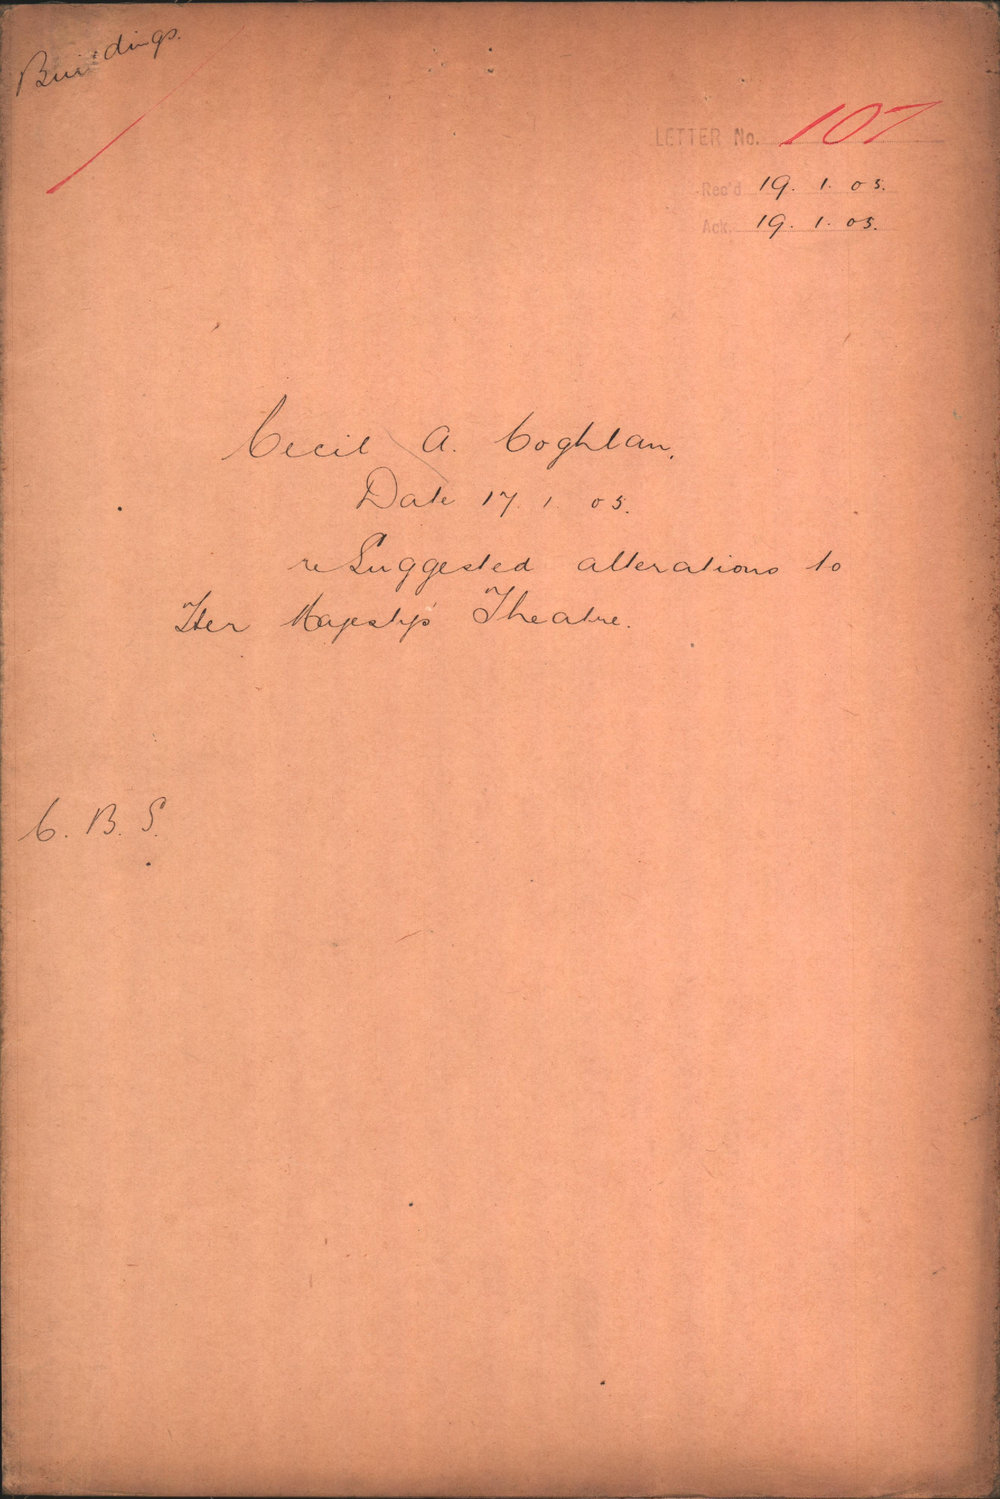 Buildings.
LETTER No. 107
Rec'd 19. 1. 05.
Ack. 19. 1. 05.
Cecil A. Coghlan,
Date 17. 1. 05.
re Suggested alterations to
Her Majesty's Theatre.
C. B. S.